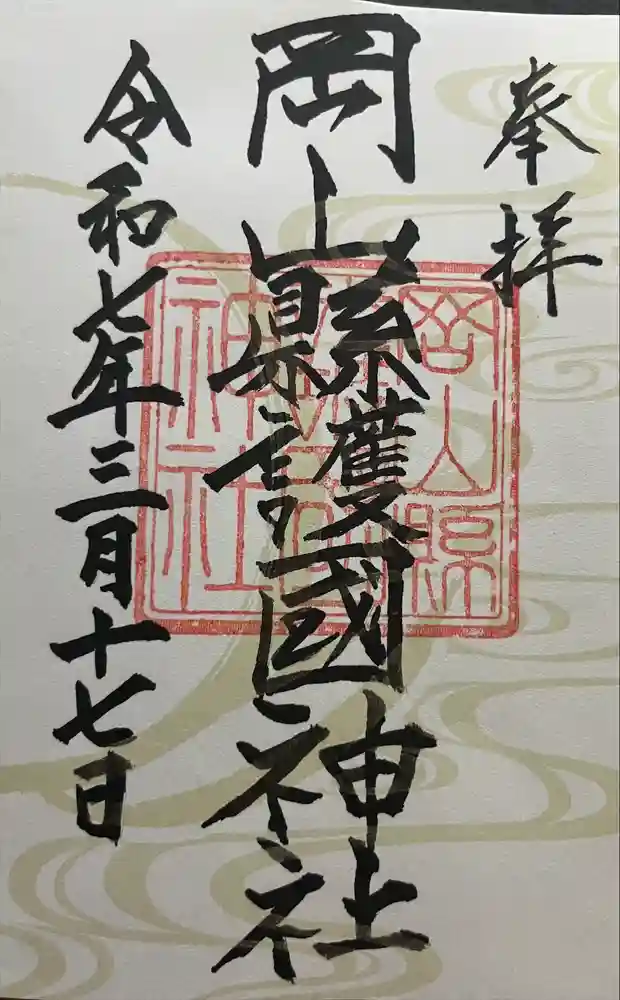 奉拝
岡山縣護國神社
令和七年三月十七日
岡山縣護國神社